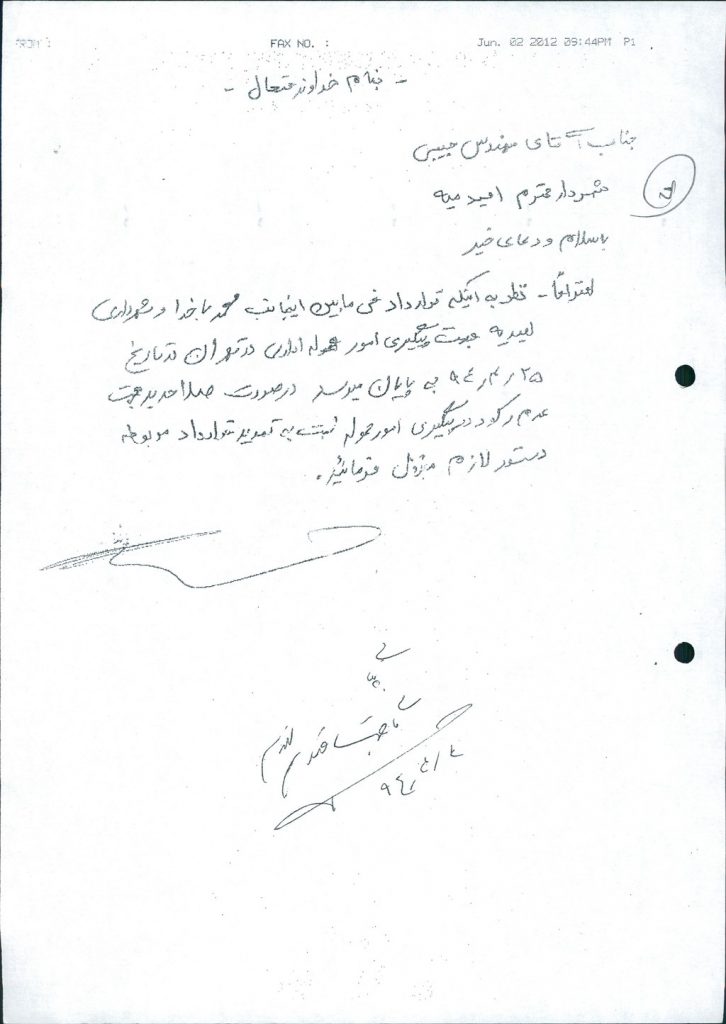 FROM : FAX NO. : Jun. 02 2012 09:44PM P1
- بنام خداوند متعال -
جناب آقای مهندس حبیبی
شهردار محترم امیدیه
باسلام و دعای خیر
احتراماً - نظر به اینکه قرارداد فی مابین اینجانب محمد ناخدا و شهرداری
امیدیه جهت پیگیری امور محوله اداری در تهران در تاریخ
۲۵ / ۴ / ۹۴ به پایان میرسد در صورت صلاحدید جهت
عدم رکود در پیگیری امور محوله نسبت به تمدید قرارداد مربوطه
دستور لازم مبذول فرمائید.
۹۴/۴/۴